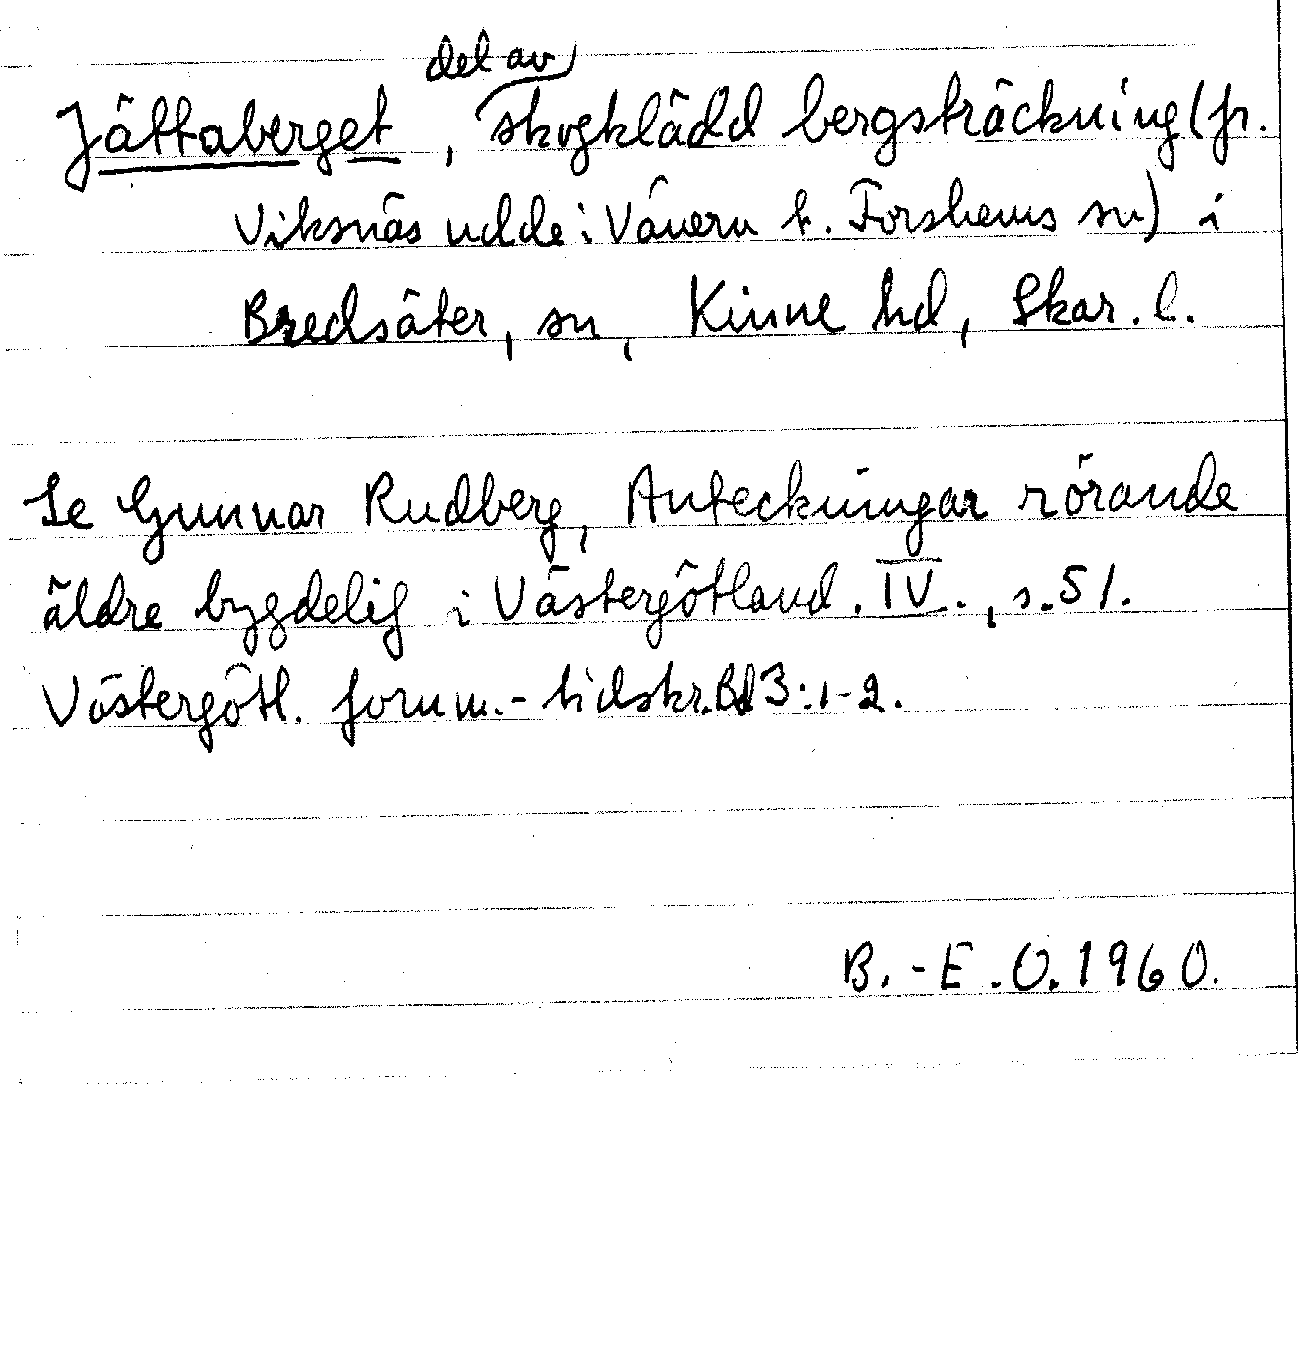 Jättaberget, del av skogklädd bergsträckning (fr.
Viksnäs udde i Vänern t. Forshems sn) i
Bredsäter, sn, Kinne hd, Skar. l.
Se Gunnar Rudberg, Anteckningar rörande
äldre bygdelif i Västergötland. IV., s. 51.
Västergötl. fornm.-tidskr. Bd 3:1-2.
B.-E.O. 1960.